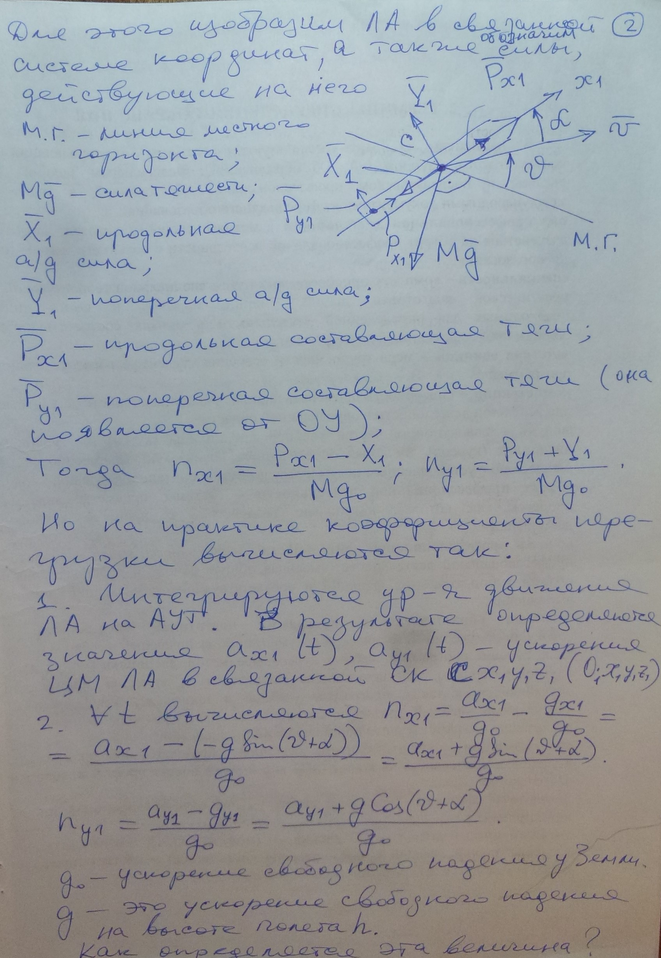 Для этого изобразим ЛА в связанной ②
системе координат, а также обозначим силы,
действующие на него
М.Г. – линия местного
горизонта;
Mḡ – сила тяжести;
X̄₁ – продольная
а/д сила;
Ȳ₁ – поперечная а/д сила;
Ȳ₁ P̄x₁ x₁
C α V̄
X̄₁ ϑ
P̄y₁ Px₁ Mḡ М.Г.
P̄x₁ – продольная составляющая тяги;
P̄y₁ – поперечная составляющая тяги (она
появляется от ОУ);
Тогда nx₁ = (Px₁ – X₁)/(Mg₀); ny₁ = (Py₁ + Y₁)/(Mg₀).
Но на практике коэффициенты пере-
грузки вычисляются так:
1. Интегрируются ур-я движения
ЛА на АУТ. В результате определяются
значения ax₁(t), ay₁(t) – ускорения
ЦМ ЛА в связанной СК Cx₁y₁z₁ (O₁x₁y₁z₁)
2. ∀t вычисляются nx₁ = ax₁/g₀ – gx₁/g₀ =
= (ax₁ – (–g Sin(ϑ+α)))/g₀ = (ax₁ + g Sin(ϑ+α))/g₀.
ny₁ = (ay₁ – gy₁)/g₀ = (ay₁ + g Cos(ϑ+α))/g₀.
g₀ – ускорение свободного падения у Земли.
g – это ускорение свободного падения
на высоте полета h.
Как определяется эта величина?